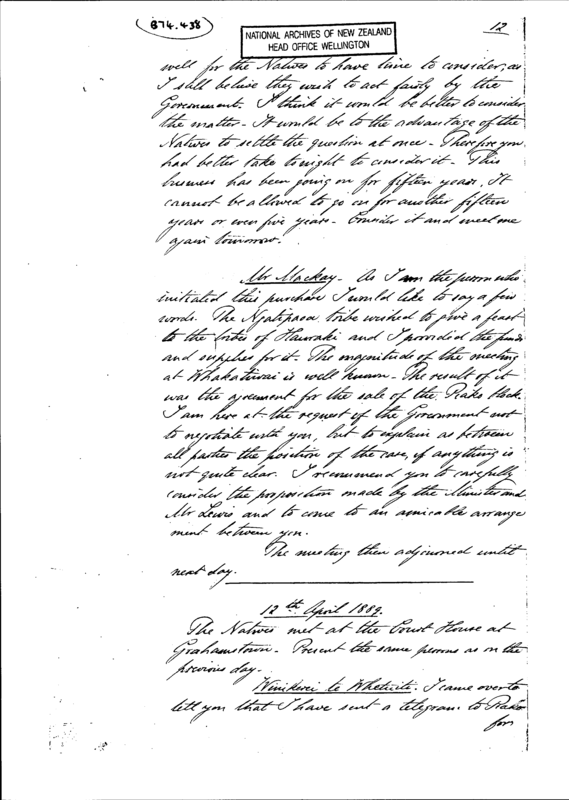 B74.438
12
NATIONAL ARCHIVES OF NEW ZEALAND
HEAD OFFICE WELLINGTON
well for the Natives to have time to consider; as
I still believe they wish to act fairly by the
Government. I think it would be better to consider
the matter - It would be to the advantage of the
Natives to settle the question at once - Therefore you
had better take tonight to consider it - This
business has been going on for fifteen years. It
cannot be allowed to go on for another fifteen
years or even five years - Consider it and meet me
again tomorrow.
Mr Mackay - As I am the person who
initiated this purchase I would like to say a few
words. The Ngatipaoa tribe wished to give a feast
to the tribes of Hauraki and I provided the funds
and supplies for it. The magnitude of the meeting
at Whakatiwai is well known - The result of it
was the agreement for the sale of the Piako block.
I am here at the request of the Government not
to negotiate with you, but to explain as between
all parties the position of the case, if anything is
not quite clear. I recommend you to carefully
consider the proposition made by the Minister and
Mr Lewis and to come to an amicable arrange
ment between you.
The meeting then adjourned until
next day.
12th April 1889.
The Natives met at the Court House at
Grahamstown. Present the same persons as on the
previous day -
te Whetuiti. I came over to
tell you that I have sent a telegram to Piako
for